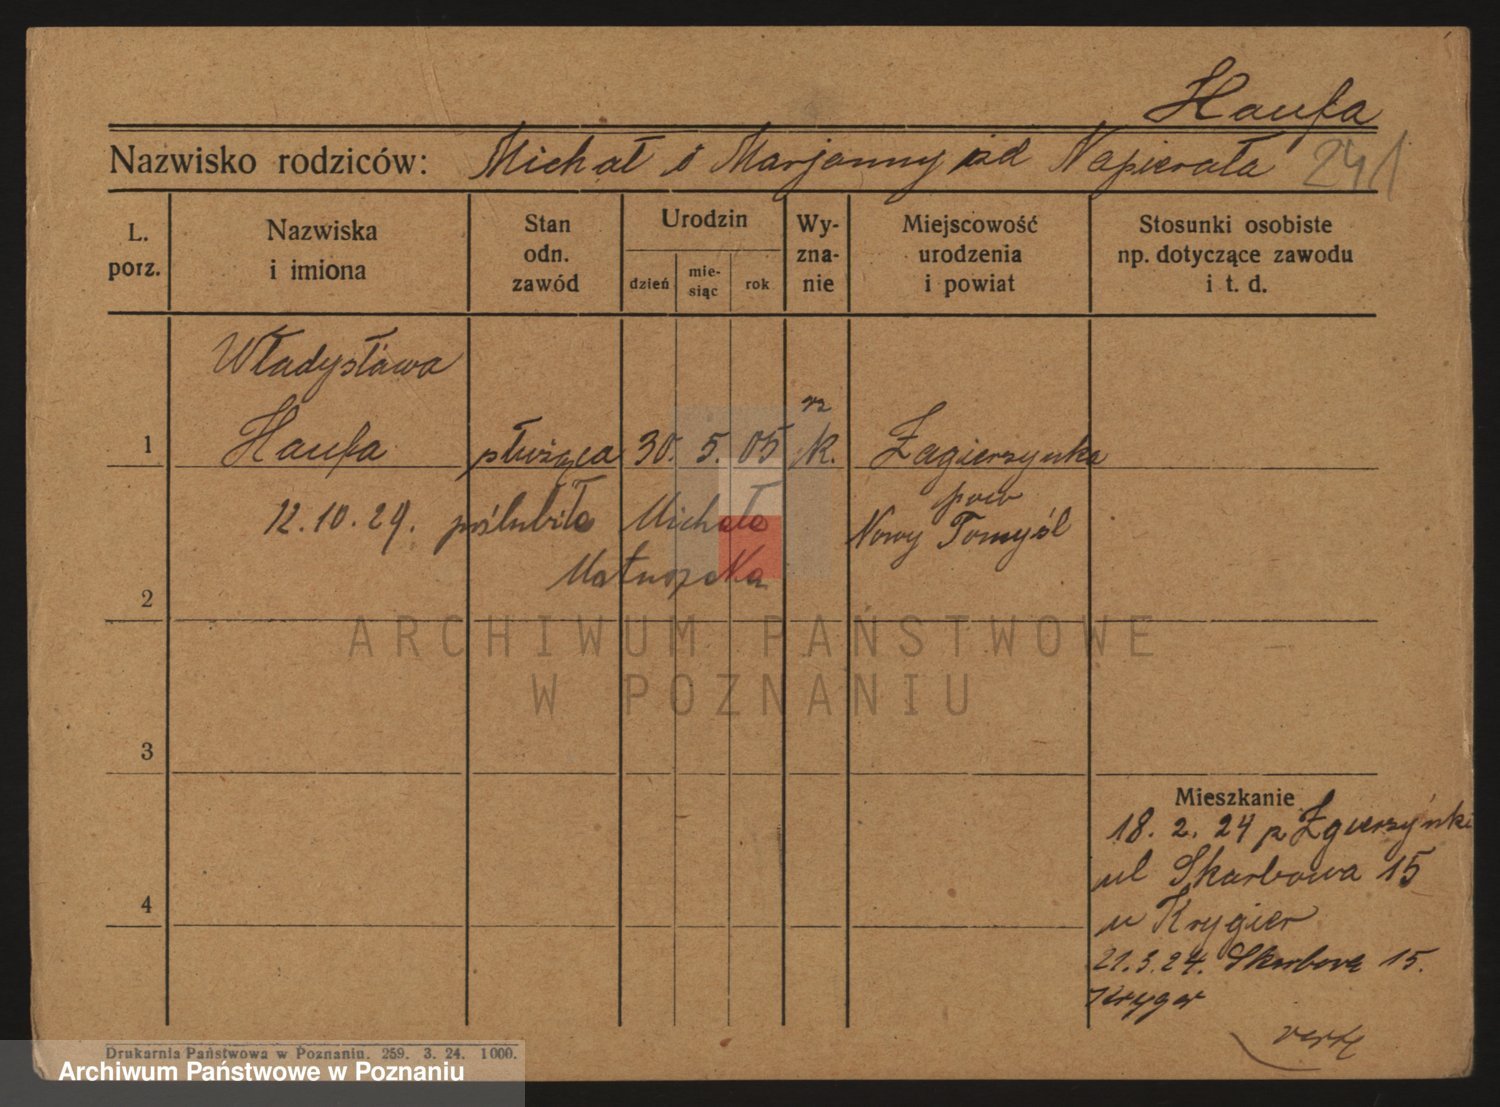 Haufa
Nazwisko rodziców: Michał i Marjanny od Napierała 241
L. porz.
Nazwiska i imiona
Stan odn. zawód
Urodzin
dzień
mie-siąc
rok
Wy-zna-nie
Miejscowość urodzenia i powiat
Stosunki osobiste np. dotyczące zawodu i t. d.
Władysława
1 Haufa służąca 30. 5. 05 rz k. Zagierzynka
pow
12.10.29. poślubiła Michała Nowy Tomyśl
2
3
4
Mieszkanie
18. 2. 24 z Zgierzynki
ul Skarbowa 15
u Krygier
21.3.24. Skarbowa 15.
Kryger
verte
Drukarnia Państwowa w Poznaniu. 259. 3. 24. 1000.
ARCHIWUM PAŃSTWOWE
W POZNANIU
Archiwum Państwowe w Poznaniu